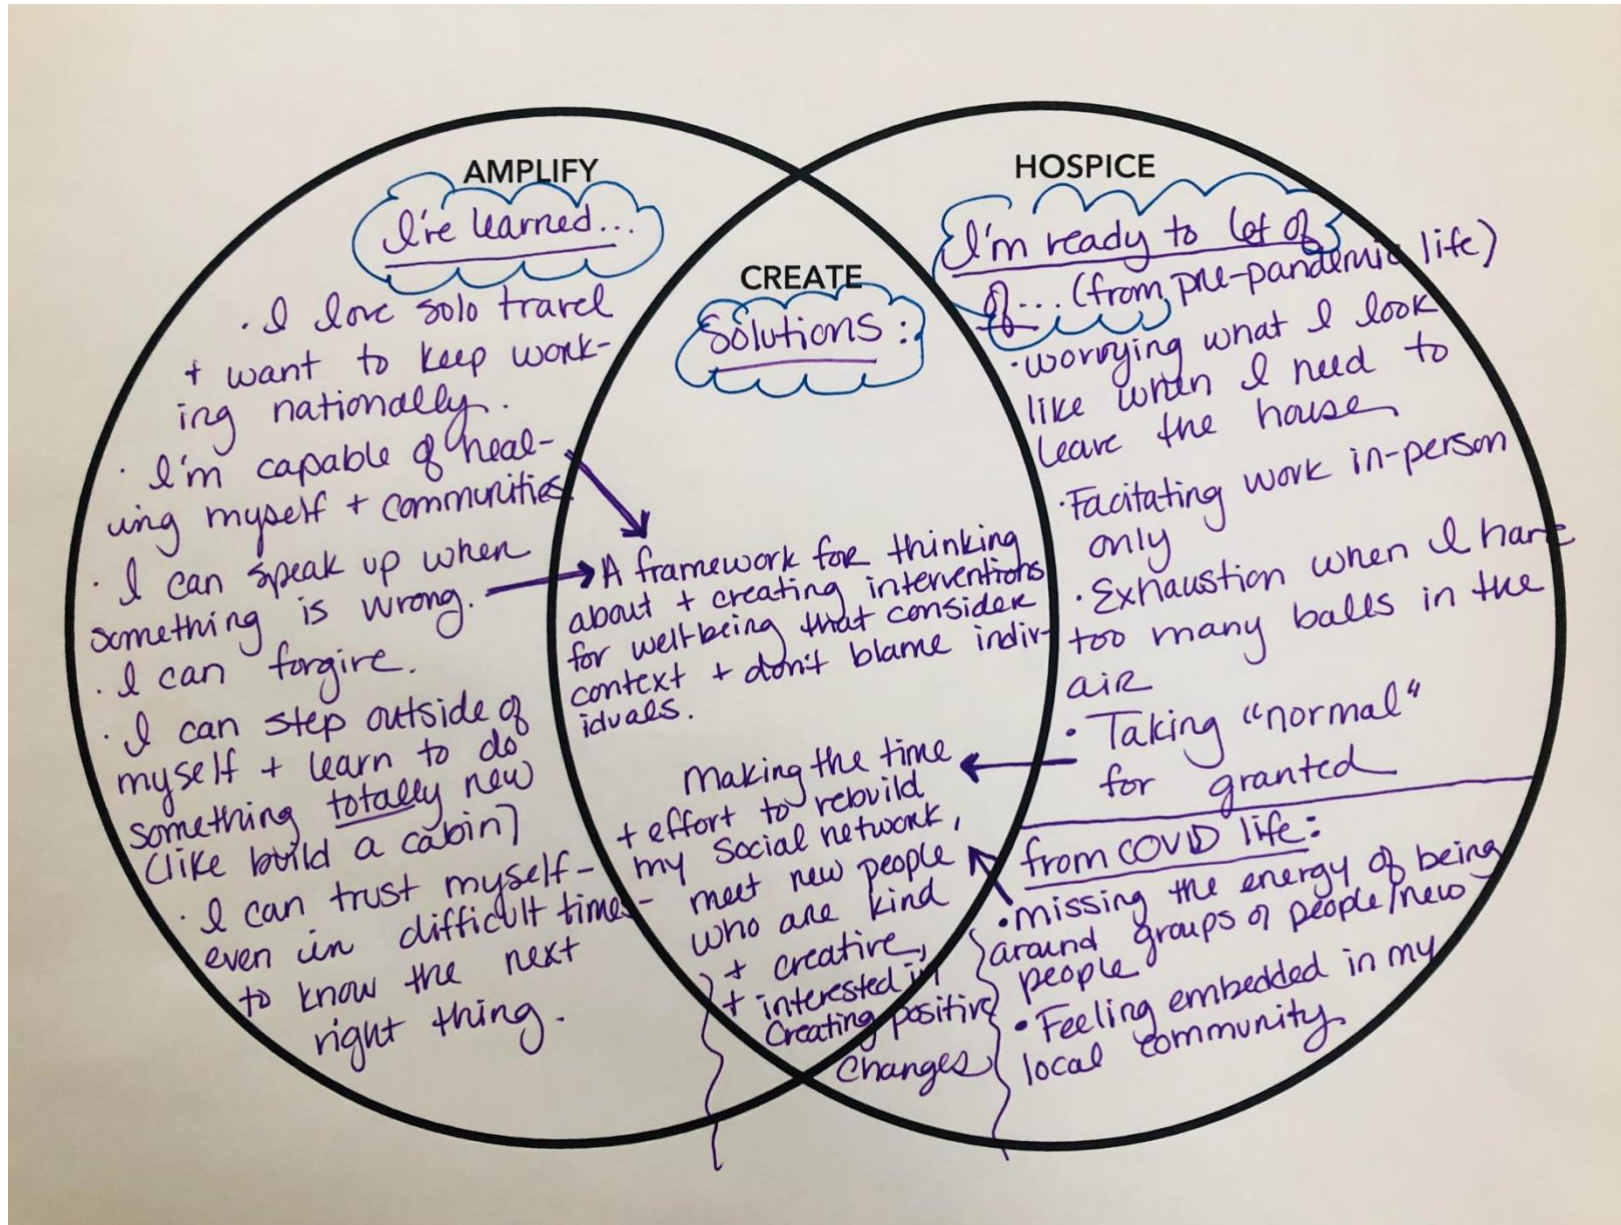 AMPLIFY
I've learned...
· I love solo travel
+ want to keep work-
ing nationally.
· I'm capable of heal-
ing myself + communities.
· I can speak up when
something is wrong.
· I can forgive.
· I can step outside of
myself + learn to do
something totally new
(like build a cabin)
· I can trust myself-
even in difficult times-
to know the next
right thing.
CREATE
Solutions:
A framework for thinking
about + creating interventions
for well-being that consider
context + don't blame indiv-
iduals.
Making the time
+ effort to rebuild
my social network,
meet new people
who are kind
+ creative,
+ interested in
Creating positive
changes
HOSPICE
I'm ready to let of
of... (from pre-pandemic life)
· worrying what I look
like when I need to
leave the house
· Facitating work in-person
only
· Exhaustion when I have
too many balls in the
air
· Taking "normal"
for granted
from COVID life:
· missing the energy of being
around groups of people/new
people
· Feeling embedded in my
local community